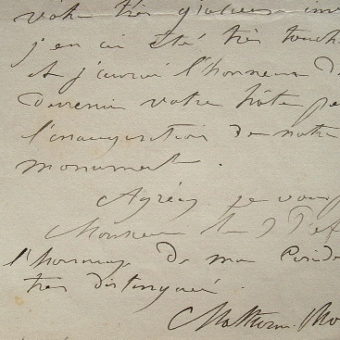 votre très gracieuse inv
j'en ai été très touch
et j'aurai l'honneur de
devenir votre hôte pe
l'inauguration de notre
monument.
Agréez je vous
Monsieur le
l'hommage de ma
très distinguée.
Mathurin Mo